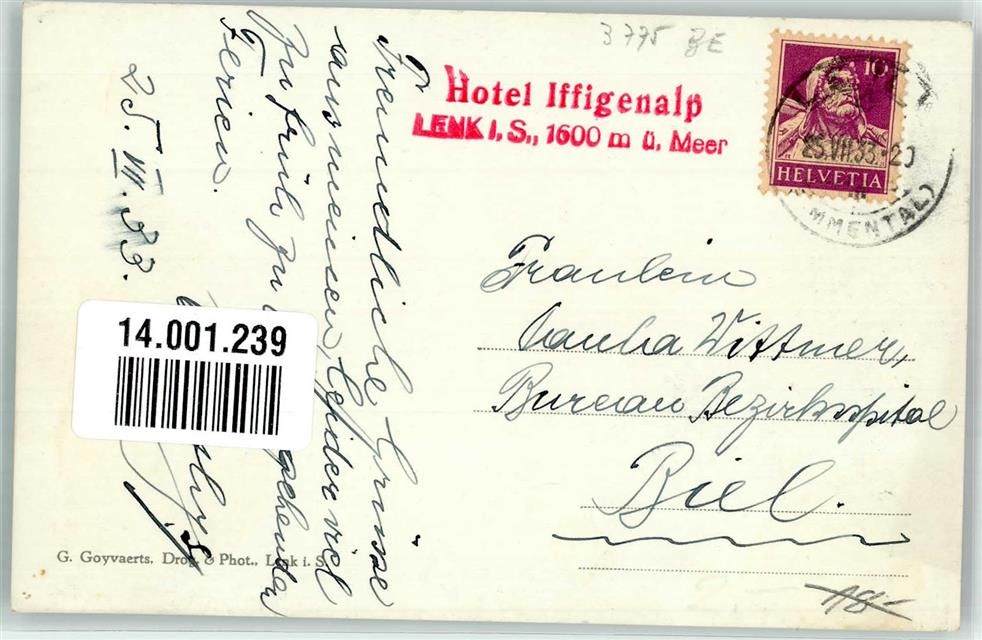 3775 BE
Hotel Iffigenalp
LENK I. S., 1600 m ü. Meer
10
HELVETIA
25.VII.33.-20
MMENTAL)
Freundliche Grüsse
aus meinen, leider viel
zu früh zu
gehenden
Ferien.
25. VII. 33.
14.001.239
Fräulein
Wittmer,
Bureau Bezirksspital
Biel.
G. Goyvaerts, Drog. & Phot., Lenk i. S.
18-